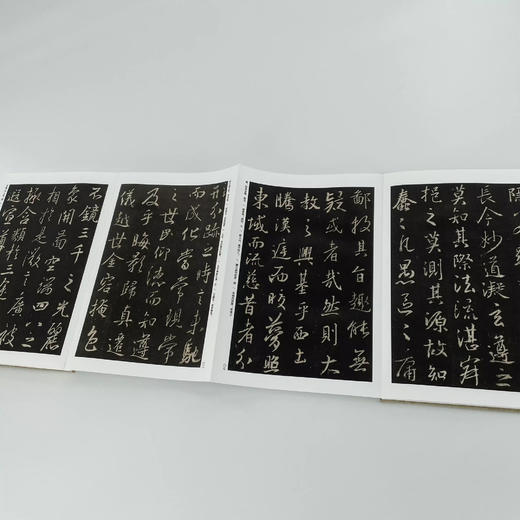 長今妙道凝玄遵之
莫知其際法流湛寂
挹之莫測其源故知
蠢〻凡愚區〻庸
鄙投其旨趣能無
疑或者哉然則大
教之興基乎西土
騰漢庭而皎夢照
東域而流慈昔者分
形分跡之時言未馳
而成化當常現常
之世民仰德而知遵
及乎晦影歸真遷
儀越世金容掩色
不鏡三千之光麗
象開圖空端四八之
相於是微言廣被
拯含類於三
遺